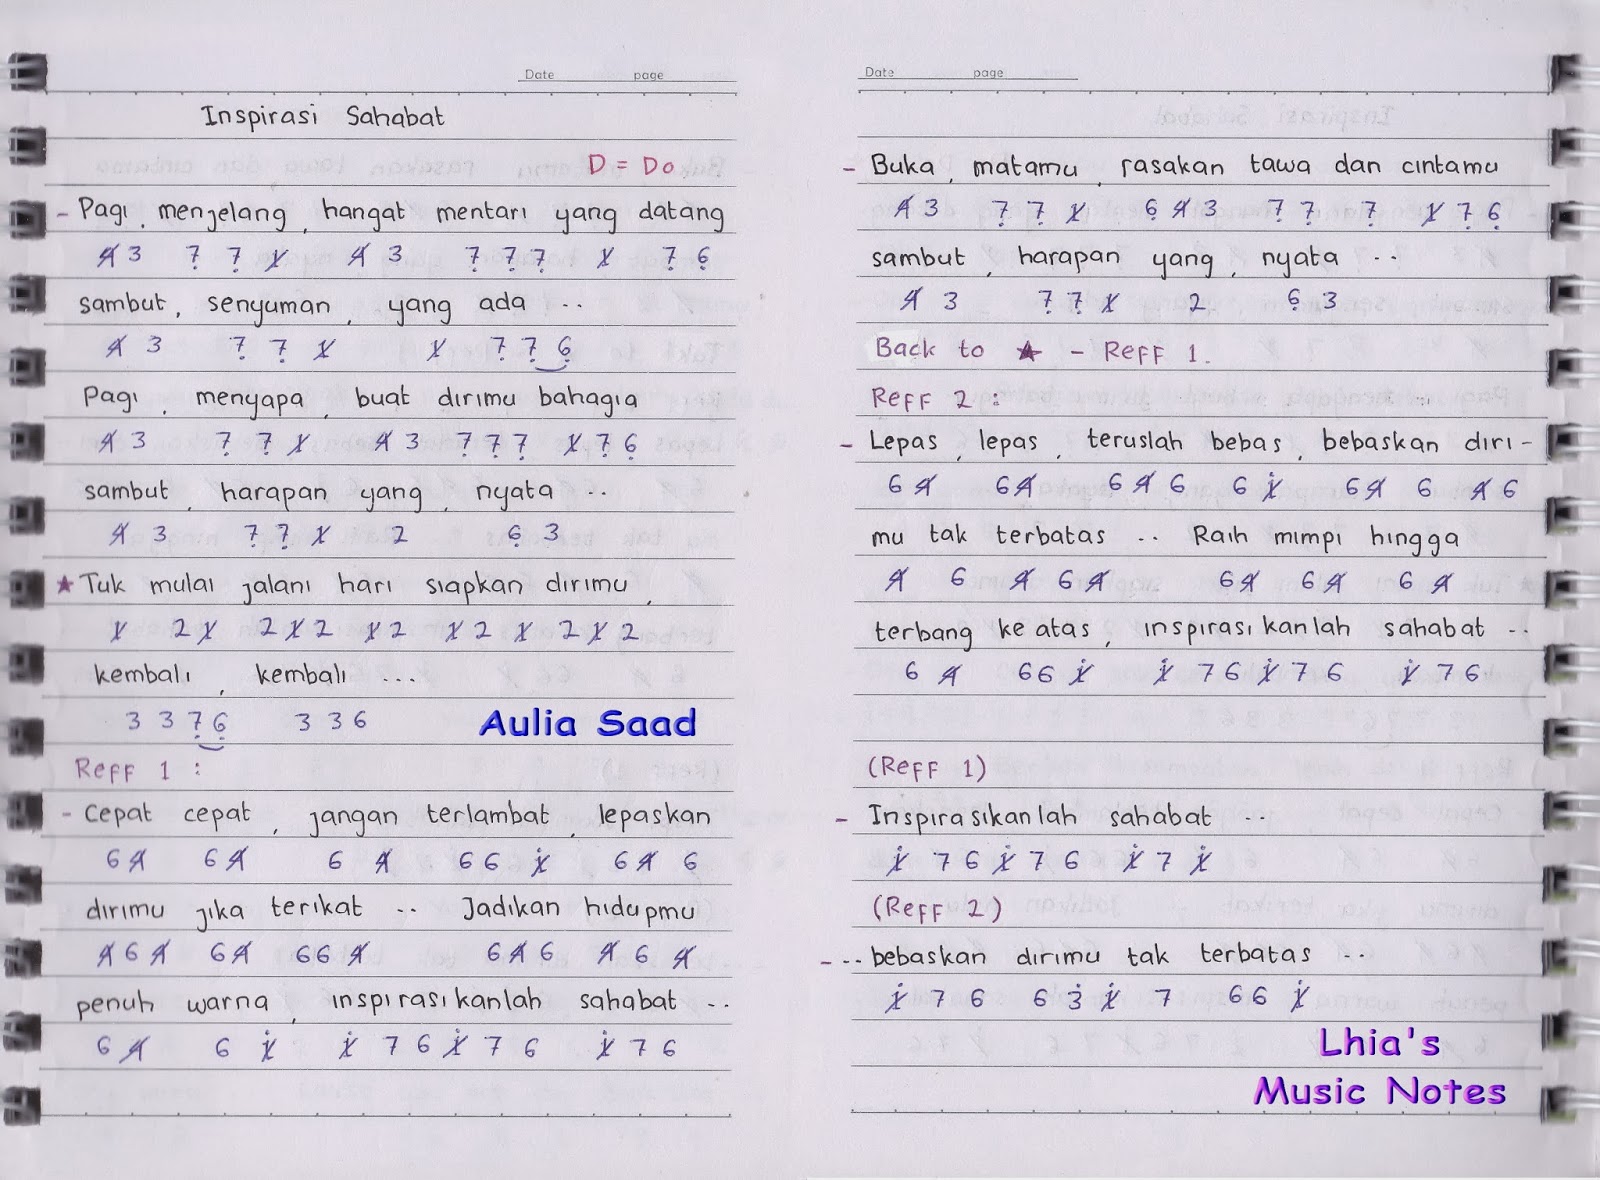 Date page
Inspirasi Sahabat
D = Do
- Pagi, menjelang, hangat mentari yang datang
4̸ 3 7̣ 7̣ 1̸ 4̸ 3 7̣ 7̣ 7̣ 1̸ 7̣ 6̣
sambut, senyuman, yang ada ..
4̸ 3 7̣ 7̣ 1̸ 1̸ 7̣ 7̣ 6̣
Pagi, menyapa, buat dirimu bahagia
4̸ 3 7̣ 7̣ 1̸ 4̸ 3 7̣ 7̣ 7̣ 1̸ 7̣ 6̣
sambut, harapan yang, nyata ..
4̸ 3 7̣ 7̣ 1̸ 2 6̣ 3
★ Tuk mulai jalani hari siapkan dirimu,
1̸ 2 1̸ 2 1̸ 2 1̸ 2 1̸ 2 1̸ 2 1̸ 2
kembali, kembali ...
3 3 7̣ 6̣ 3 3 6
Aulia Saad
Reff 1 :
- Cepat cepat, jangan terlambat, lepaskan
6 4̸ 6 4̸ 6 4̸ 6 6 1̸̇ 6 4̸ 6
dirimu jika terikat .. Jadikan hidupmu
4̸ 6 4̸ 6 4̸ 6 6 4̸ 6 4̸ 6 4̸ 6 4̸
penuh warna, inspirasikanlah sahabat ..
6 4̸ 6 1̸̇ 1̸̇ 7 6 1̸̇ 7 6 1̸̇ 7 6
Date page
- Buka, matamu, rasakan tawa dan cintamu
4̸ 3 7̣ 7̣ 1̸ 6̣ 4̸ 3 7̣ 7̣ 7̣ 1̸ 7̣ 6̣
sambut, harapan yang, nyata ..
4̸ 3 7̣ 7̣ 1̸ 2 6̣ 3
Back to ★ - Reff 1.
Reff 2 :
- Lepas, lepas, teruslah bebas, bebaskan diri -
6 4̸ 6 4̸ 6 4̸ 6 6 1̸̇ 6 4̸ 6 4̸ 6
mu tak terbatas .. Raih mimpi hingga
4̸ 6 4̸ 6 4̸ 6 4̸ 6 4̸ 6 4̸
terbang ke atas, inspirasikanlah sahabat ..
6 4̸ 6 6 1̸̇ 1̸̇ 7 6 1̸̇ 7 6 1̸̇ 7 6
(Reff 1)
- Inspirasikanlah sahabat ..
1̸̇ 7 6 1̸̇ 7 6 1̸̇ 7 1̸̇
(Reff 2)
- .. bebaskan dirimu tak terbatas ..
1̸̇ 7 6 6 3̇ 1̸̇ 7 6 6 1̸̇
Lhia's
Music Notes